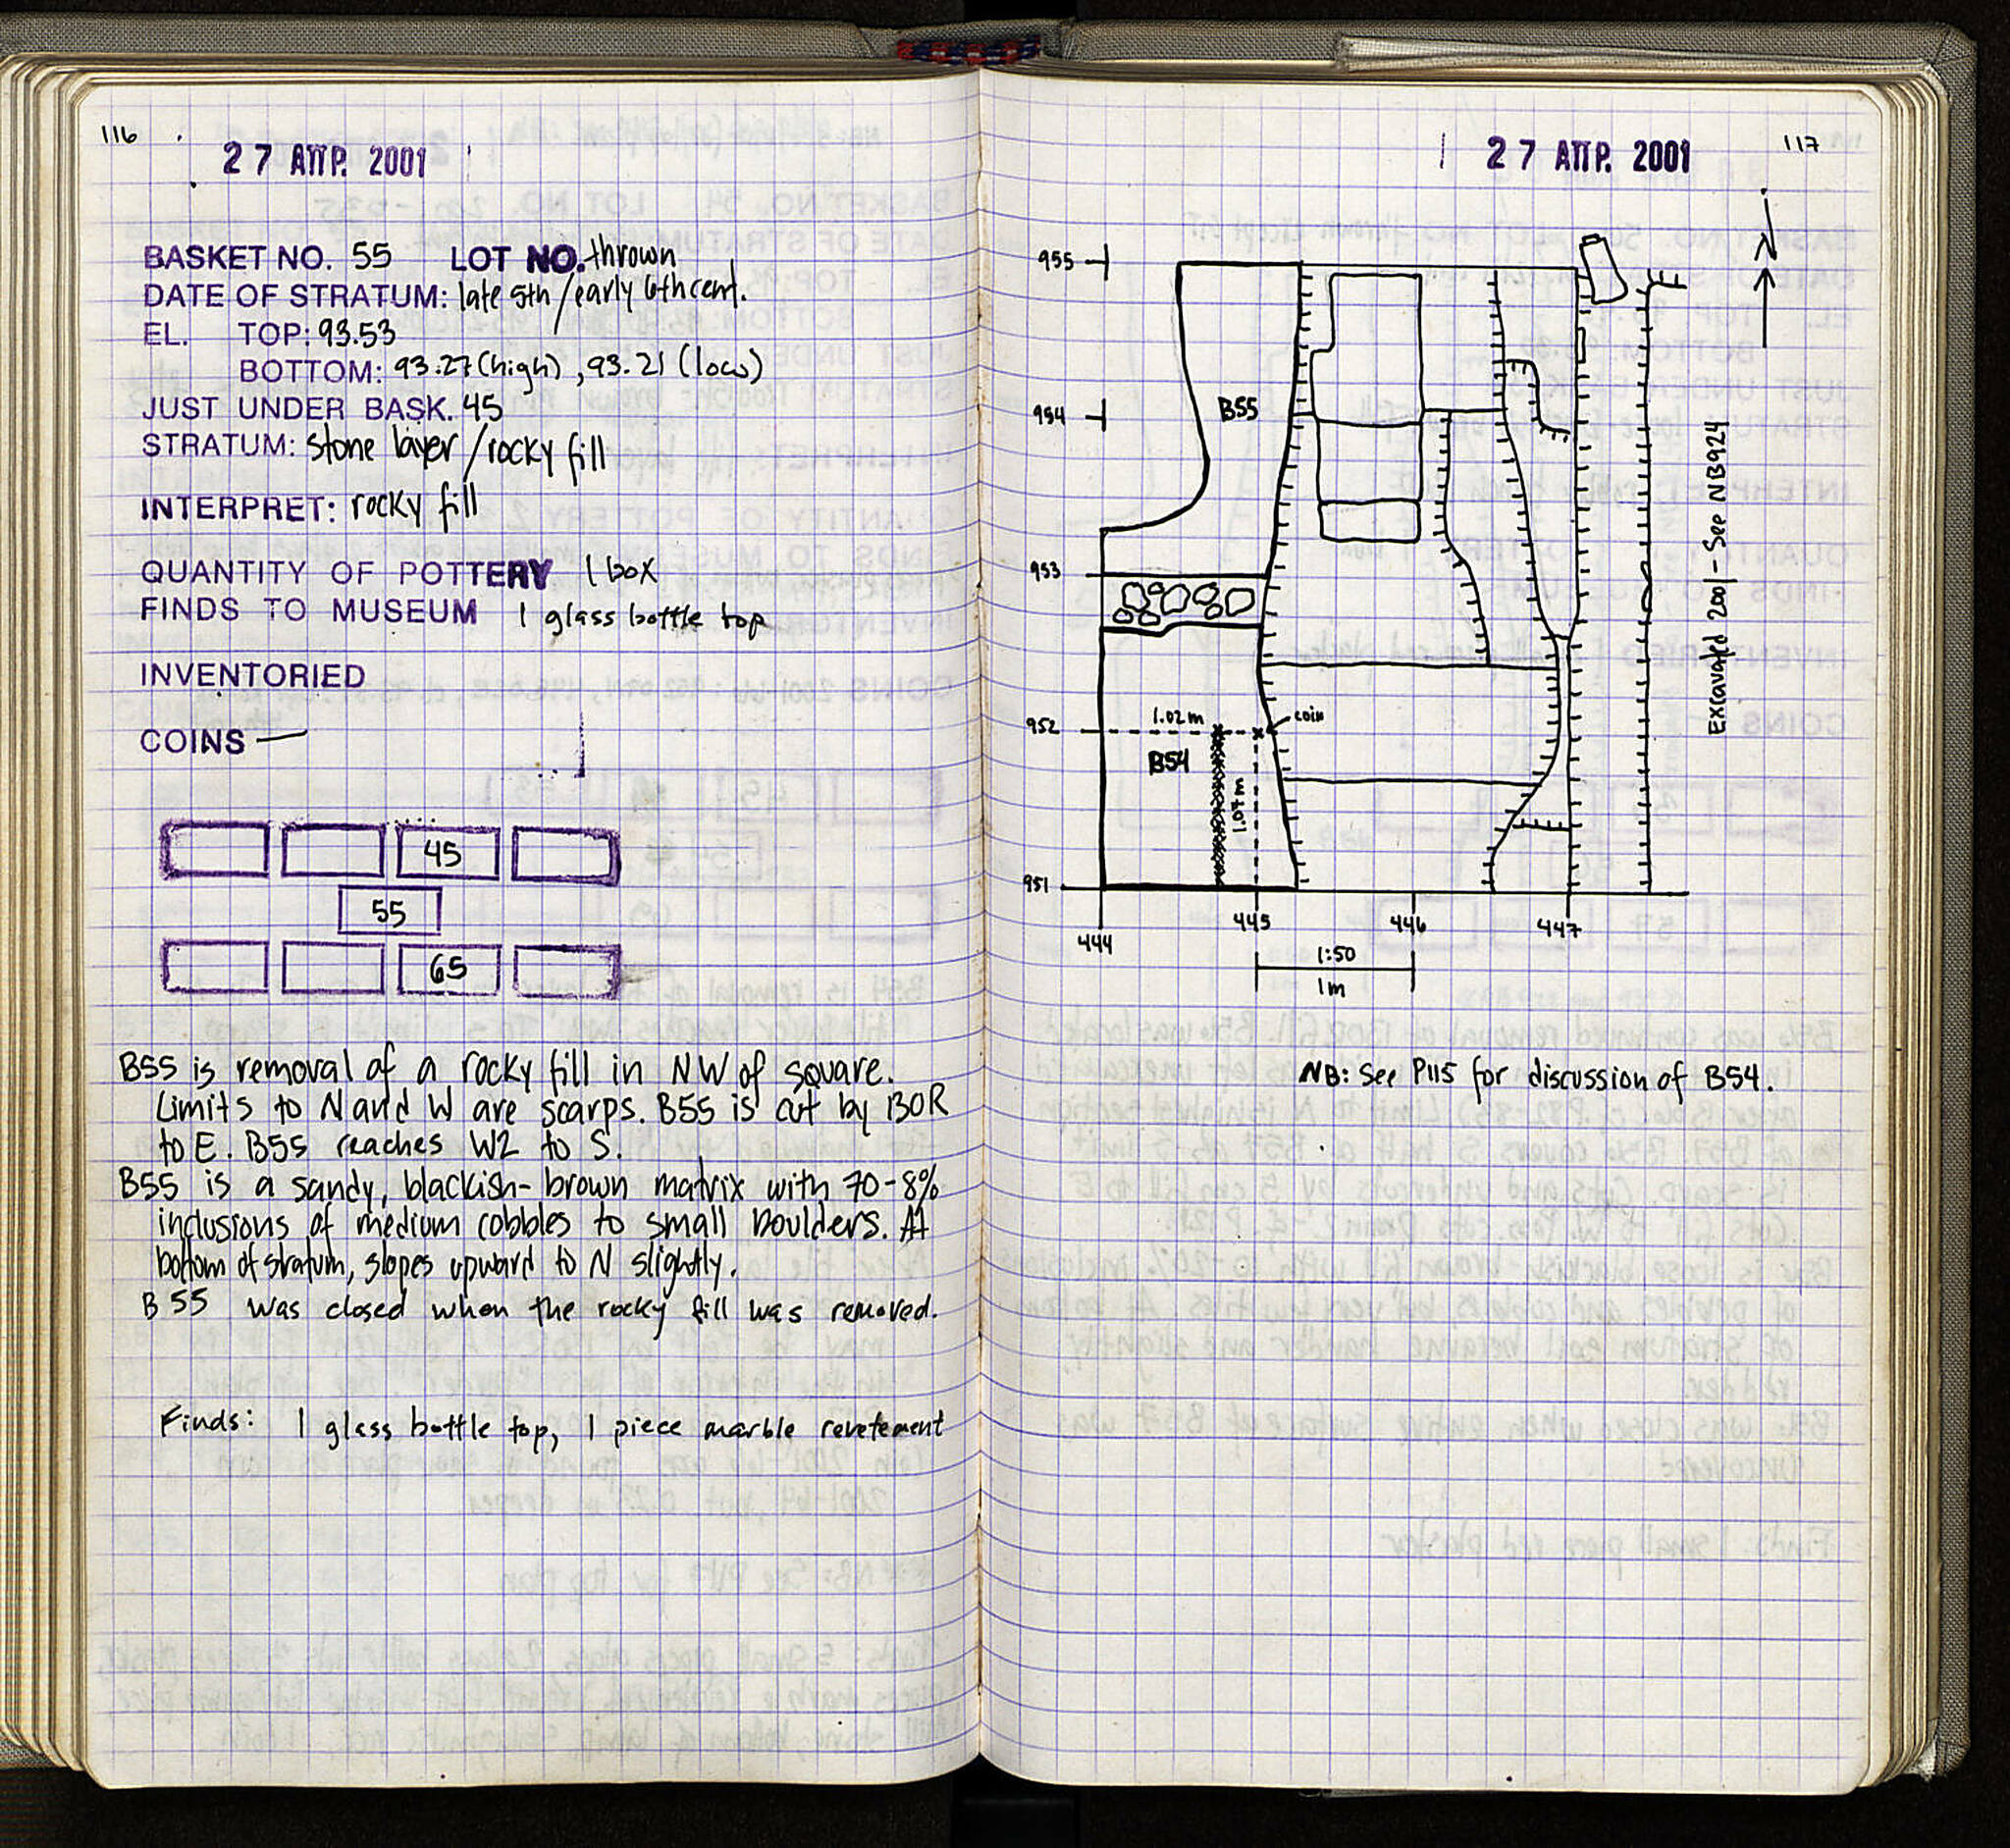 116
27 ΑΠΡ. 2001
BASKET NO. 55 LOT NO. thrown
DATE OF STRATUM: late 5th/early 6th cent.
EL. TOP: 93.53
BOTTOM: 93.27 (high), 93.21 (low)
JUST UNDER BASK. 45
STRATUM: stone layer/rocky fill
INTERPRET: rocky fill
QUANTITY OF POTTERY 1 box
FINDS TO MUSEUM 1 glass bottle top
INVENTORIED
COINS —
45
55
65
B55 is removal of a rocky fill in NW of square.
Limits to N and W are scarps. B55 is cut by 130R
to E. B55 reaches W2 to S.
B55 is a sandy, blackish-brown matrix with 70-8%
inclusions of medium cobbles to small boulders. At
bottom of stratum, slopes upward to N slightly.
B 55 was closed when the rocky fill was removed.
Finds: 1 glass bottle top, 1 piece marble revetement
27 ΑΠΡ. 2001
117
N
955
954
B55
953
952
1.02m
coin
B54
1.07m
951
444
445
446
447
1:50
1m
Excavated 2001 - See NB924
NB: See P115 for discussion of B54.